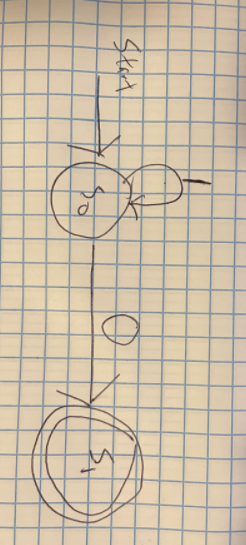 Start
1
S0
0
S1